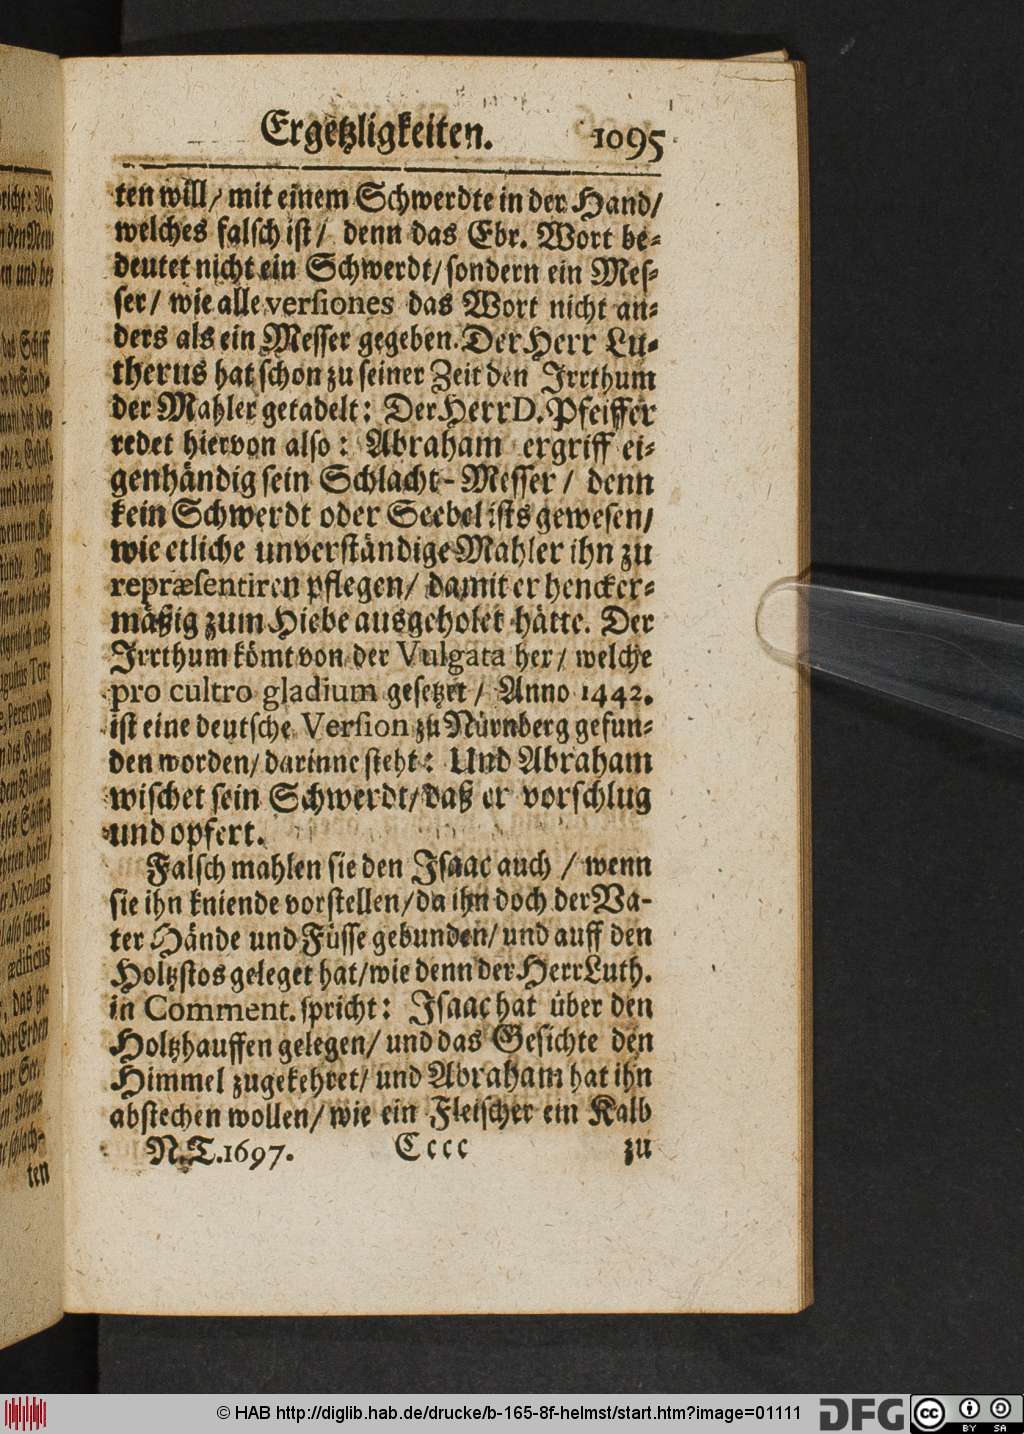 Ergetzligkeiten. 1095
ten will/ mit einem Schwerdte in der Hand/
welches falsch ist/ denn das Ebr. Wort be-
deutet nicht ein Schwerdt/ sondern ein Mes-
ser/ wie alle versiones das Wort nicht an-
ders als ein Messer gegeben. Der Herr Lu-
therus hat schon zu seiner Zeit den Irrthum
der Mahler getadelt: Der Herr D. Pfeiffer
redet hiervon also: Abraham ergriff ei-
genhändig sein Schlacht-Messer/ denn
kein Schwerdt oder Seebel ists gewesen/
wie etliche unverständige Mahler ihn zu
repræsentiren pflegen/ damit er hencker-
mäßig zum Hiebe ausgeholet hätte. Der
Irrthum kömt von der Vulgata her/ welche
pro cultro gladium gesetzet/ Anno 1442.
ist eine deutsche Version zu Nürnberg gefun-
den worden/ darinne steht: Und Abraham
wischet sein Schwerdt/ daß er vorschlug
und opfert.
Falsch mahlen sie den Isaac auch / wenn
sie ihn kniende vorstellen/ da ihn doch der Va-
ter Hände und Füsse gebunden/ und auff den
Holtzstos geleget hat/ wie denn der Herr Luth.
in Comment. spricht: Isaac hat über den
Holtzhauffen gelegen/ und das Gesichte den
Himmel zugekehret/ und Abraham hat ihn
abstechen wollen/ wie ein Fleischer ein Kalb
N.T. 1697. Cccc zu
ten
© HAB http://diglib.hab.de/drucke/b-165-8f-helmst/start.htm?image=01111
DFG
cc BY SA